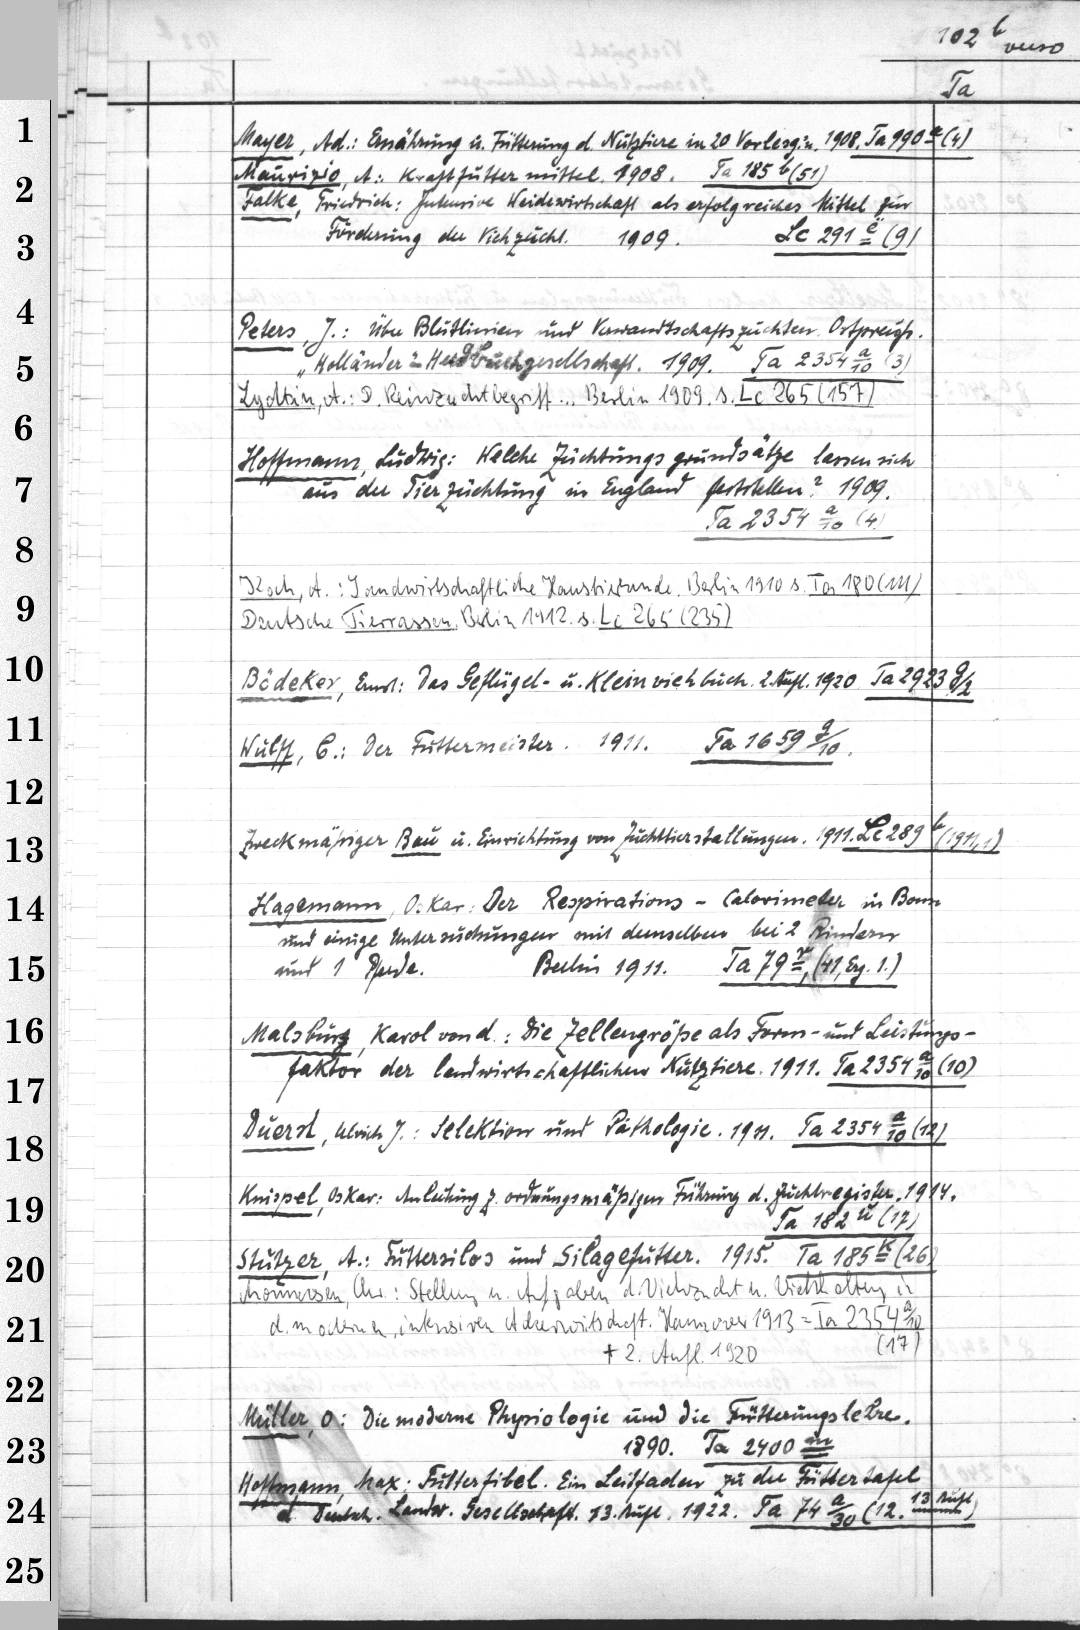 102 b
verso
Ta
1 Mayer, Ad.: Ernährung u. Fütterung d. Nutztiere in 20 Vorlesg:n. 1908. Ta 990 a (4)
2 Maurizio, A.: Kraftfuttermittel. 1908. Ta 185 b (51)
Falke, Friedrich: Intensive Weidewirtschaft als erfolgreiches Mittel zur
3 Förderung der Viehzücht. 1909. Lc 291 e (9)
4 Peters, J.: Über Blutlinien und Verwandtschaftszuchten Ostpreuß.
5 „Holländer Herdbuchgesellschaft. 1909. Ta 2354 a/10 (3)
Lydtin, A.: D. Reinzuchtbegriff... Berlin 1909. s. Lc 265 (157)
6
Hoffmann, Ludwig: Welche Züchtungsgrundsätze lassen sich
7 aus der Tierzüchtung in England feststellen? 1909.
Ta 2354 a/10 (4)
8
Koch, A.: Landwirtschaftliche Haustierkunde. Berlin 1910 s. Ta 180 (111)
9 Deutsche Tierrassen. Berlin 1912. s. Lc 265 (235)
10 Bödeker, Ernst: Das Geflügel- u. Kleinviehbuch. 2. Aufl. 1920 Ta 2923 g/2
11 Wulff, C.: Der Futtermeister. 1911. Ta 1659 g/10.
12
13 Zweckmäßiger Bau u. Einrichtung von Zuchttierstallungen. 1911. Lc 289 b (1911,1)
14 Hagemann, Oskar: Der Respirations - Calorimeter in Bonn
und einige Untersuchungen mit demselben bei 2 Rindern
15 und 1 Pferde. Berlin 1911. Ta 79 r, (41, Erg. 1.)
16 Malsburg, Karol von d.: Die Zellengröße als Form- und Leistungs-
faktor der landwirtschaftlichen Nutztiere. 1911. Ta 2354 a/10 (10)
17
18 Duerst, Ulrich J.: Selektion und Pathologie. 1911. Ta 2354 a/10 (12)
19 Knispel, Oskar: Anleitung z. ordnungsmäßigen Führung d. Zuchtregister. 1914.
Ta 182 u (17)
20 Stutzer, A.: Futtersilos und Silagefutter. 1915. Ta 185 k (26)
Mommsen, Chr.: Stellung u. Aufgaben d. Viehzucht u. Viehhaltung in
21 d. modernen, intensiven Ackerwirtschaft. Hannover 1913 = Ta 2354 a/10
+ 2. Aufl. 1920 (17)
22
Müller, O: Die moderne Physiologie und die Fütterungslehre.
23 1890. Ta 2400 m
Hoffmann, Max: Futterfibel. Ein Leitfaden zu der Füttertafel
24 d. Deutsch. Landw. Gesellschaft. 13. Aufl. 1922. Ta 74 a/30 (12. 13 Aufl)
25